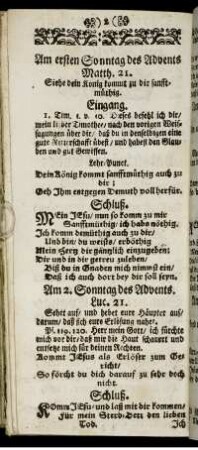 2
Am ersten Sonntag des Advents
Matth. 21.
Siehe dein König kommt zu dir sanfft-
müthig.
Eingang.
1. Tim. 1. v. 18. Dieses befehl ich dir/
mein Timothee/ nach den vorigen Weis-
sagungen über dir/ daß du in denselbigen eine
gute Ritterschafft übest/ und habest den Glau-
ben und gut Gewissen.
Lehr-Punct.
Dein König kommt sanfftmüthig auch zu
dir;
Geh Ihm entgegen Demuth voll herfür.
Schluß.
Mein JEsu/ nun so komm zu mir
Sanfftmüthig; ich habs nöthig.
Ich komm demüthig auch zu dir/
Und bin/ du weists/ erböthig
Mein Hertz dir gäntzlich einzugeben;
Dir und in dir getreu zuleben;
Biß du in Gnaden mich nimmst ein/
Daß ich auch dort bey dir soll seyn.
Am 2. Sonntag des Advents.
Luc. 21.
Sehet auf/ und hebet eure Häupter auf/
darum/ daß sich eure Erlösung nahet.
Ps. 119, 120. Herr mein Gott/ ich fürchte
mich vor dir/ daß mir die Haut schauret und
entsetze mich für deinen Rechten.
Kommt JEsus als Erlöser zum Ge-
richt/
So förcht du dich darauf zu sehr doch
nicht.
Schluß.
Komm JEsu/ und laß mit dir kommen/
Für meinen den lieben
Tod. Ich